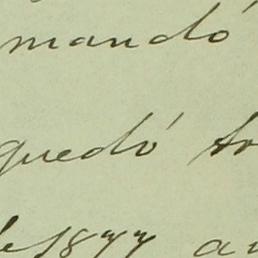 mandó
quedó
de 1877